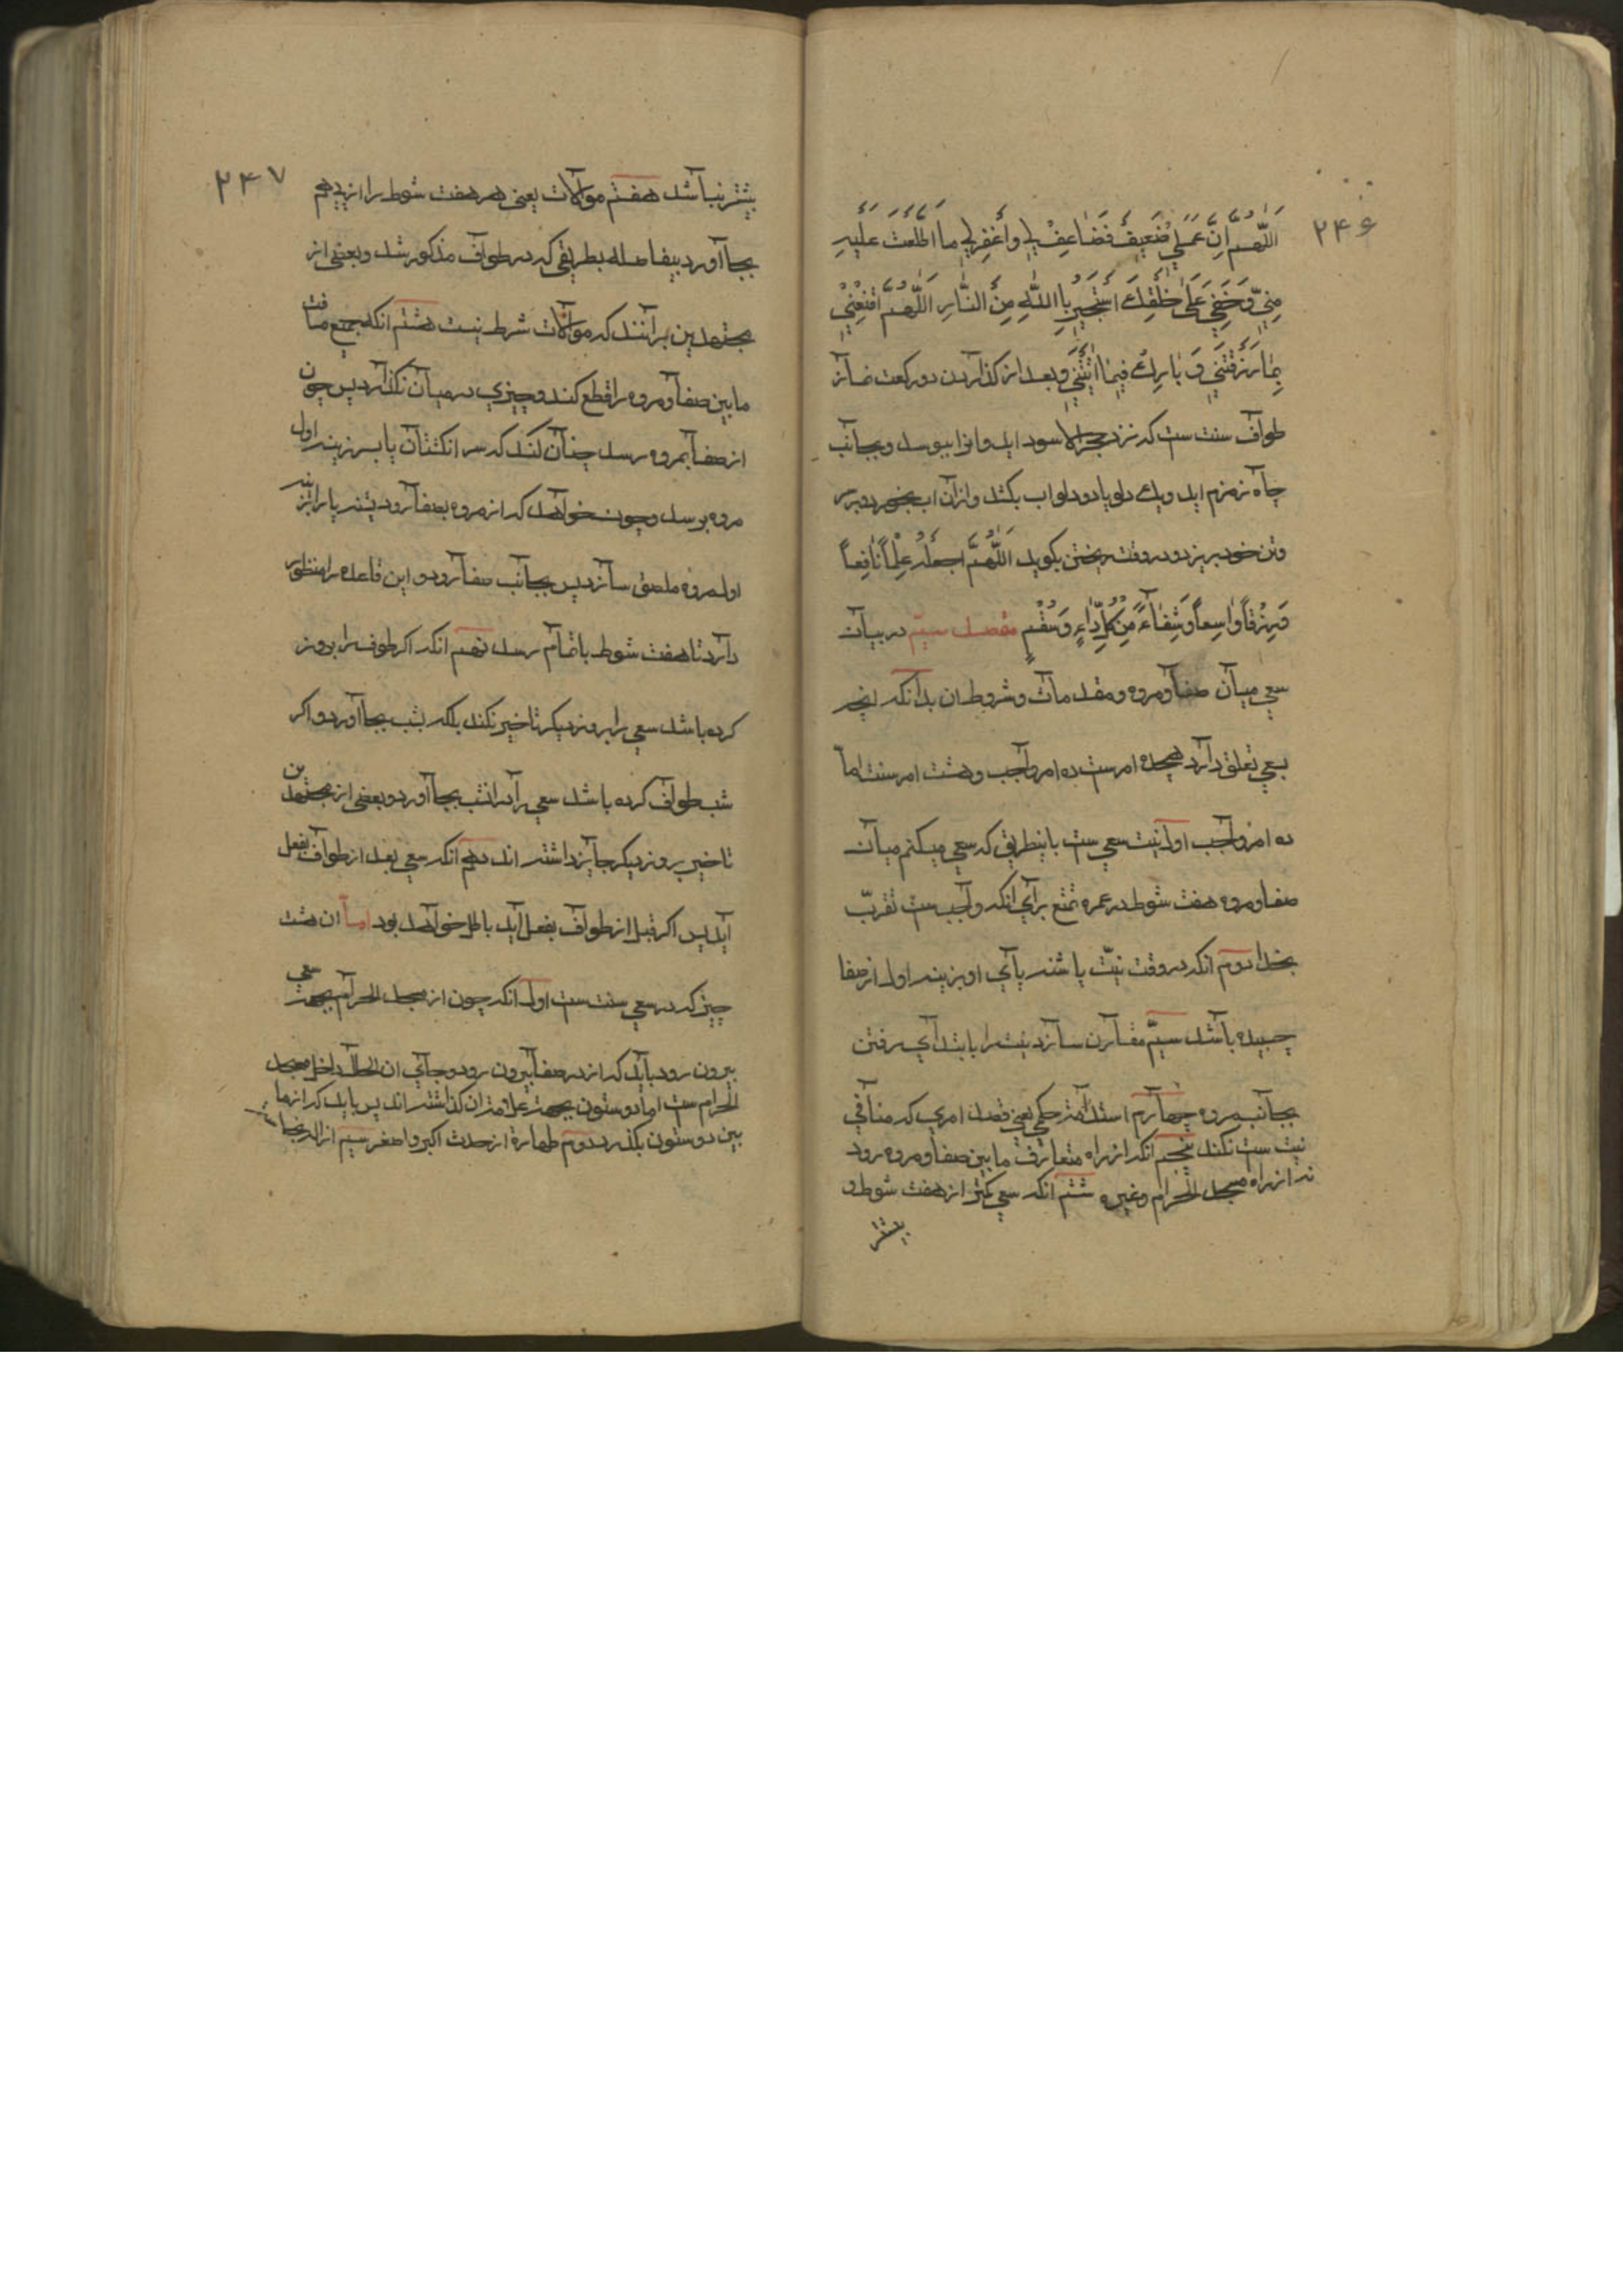 ۲۴۶
اَللّهُمَّ اِنَّ عَمَلي ضَعيفٌ فَضَاعِفْ لي وَاغْفِرْ لي ما اطَّلَعْتَ عَلَيْهِ
مِنّي وَخَفِيَ عَلى خَلْقِكَ اَسْتَجيرُ بِاللّهِ مِنَ النّارِ اَللّهُمَّ اقْنِعْني
بِما رَزَقْتَني وَ بارِكْ لي فيما اتَيْتَني وبعد از گذاردن دو رکعت نماز
طواف سنت ست که نزد حجرالاسود اید و انرا ببوسد و بجانب
چاه زمزم اید و یك دلو یا دو دلو اب بکشد و ازان اب بخورد و بر سر
وتن خود بریزد و در وقت ریختن بکوید اَللّهُمَّ اجعَلْهُ عِلْماً نافِعاً
وَرِزْقاً واسِعاً وَشِفاءً مِنْ كُلِّ داءٍ وَسُقْمٍ مقصد سیم در بیان
سعی میان صفا و مروه و مقدمات و شروط ان بدانکه انچه
بسعی تعلق دارد هیجده امرست ده امر واجب و هشت امر سنت اما
ده امر واجب اول نیت سعی ست باینطریق که سعی میکنم میان
صفا و مروه هفت شوط در عمره تمتع برای انکه واجب ست تقرّب
بخدا دوم انکه در وقت نیّت پاشنه پای او بزینه اول از صفا
چسپیده باشد سیّم مقارن سازد نیت را بابتدای رفتن
بجانب مروه چهارم استدامه حکمی یعنی قصد امری که منافی
نیت ست نکند پنجم انکه از راه متعارف مابین صفا و مروه رود
نه از راه مسجد الحرام وغیره ششم انکه سعی کمتر از هفت شوط و
بیشتر
۲۴۷
بیشتر نباشد هفتم موالات یعنی هر هفت شوط را از پی هم
بجا آورد بیفاصله بطریقی که در طواف مذکور شد و بعضی از
مجتهدین برانند که موالات شرط نیست هشتم انکه جمیع مسافت
مابین صفا و مروه را قطع کند و چیزی در میان نگذارد پس چون
از صفا بمروه رسد چنان کند که سر انکشتان پا بسر زینه اول
مروه برسد و چون خواهد که از مروه بصفا رود پاشنه پا را بزینه
اول مروه ملصق سازد پس بجانب صفا رود و این قاعده را منظور
دارد تا هفت شوط باتمام رسد نهم انکه اکر طوف را بروز
کرده باشد سعی را بروز دیکر تاخیر نکند بلکه بشب بجا آورد و اکر
شب طواف کرده باشد سعی را در انشب بجا آورد و بعضی از مجتهدین
تاخیر بروز دیکر جایز داشته اند دهم انکه سعی بعد از طواف بفعل
آید پس اکر قبل از طواف بفعل آید باطل خواهد بود اما ان هشت
چیز که در سعی سنت ست اول انکه چون از مسجد الحرام بجهت سعی
بیرون رود باید که از در صفا بیرون رود و جای ان الحال داخل مسجد
الحرام ست اما دو ستون بجهت علامت ان کذاشته اند پس باید که ازما
بین دو ستون بکذرد دوم طهارة از حدث اکبر و اصغر سیم ازاله نجاست